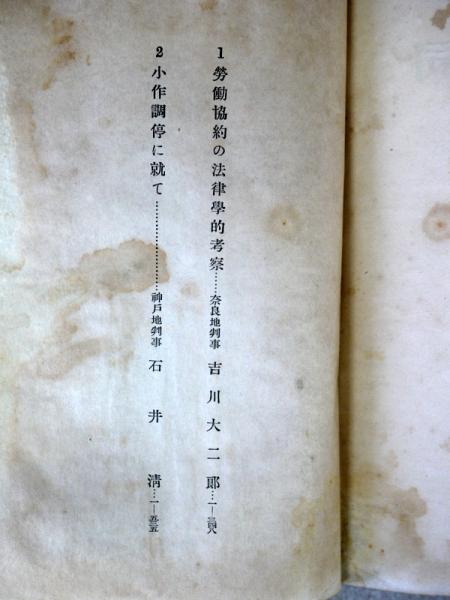 1 勞働協約の法律學的考察……奈良地判事 吉川大二郎…一—三四八
2 小作調停に就て……………………神戸地判事 石井 淸…一—